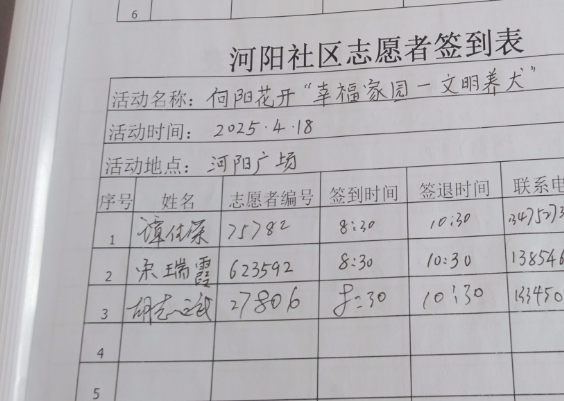 6
河阳社区志愿者签到表
活动名称: 向阳花开“幸福家园－文明养犬”
活动时间: 2025.4.18
活动地点: 河阳广场
序号 姓名 志愿者编号 签到时间 签退时间 联系电
1 谭仕深 75782 8:30 10:30
2 宋瑞霞 623592 8:30 10:30 138546
3 胡志斌 27806 8:30 10:30 133450
4
5